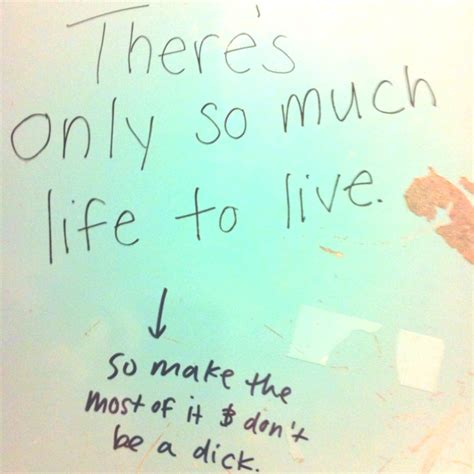 There's
only so much
life to live.
↓
so make the
most of it & don't
be a dick.